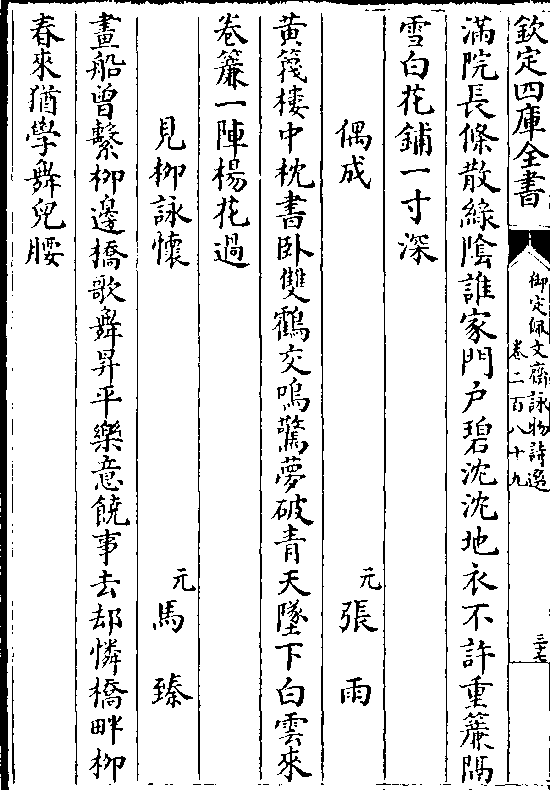 欽定四庫全書
御定佩文齋詠物詩選
卷二百八十九
三十七
滿院長條散綠陰誰家門戶碧沈沈地衣不許重簾隔
雪白花鋪一寸深
偶成
元張雨
黄篾樓中枕書卧雙鶴交鳴驚夢破青天墜下白雲來
卷簾一陣楊花過
見柳詠懷
元馬臻
畫船曾繫柳邊橋歌舞昇平樂意饒事去却憐橋畔柳
春來猶學舞兒腰